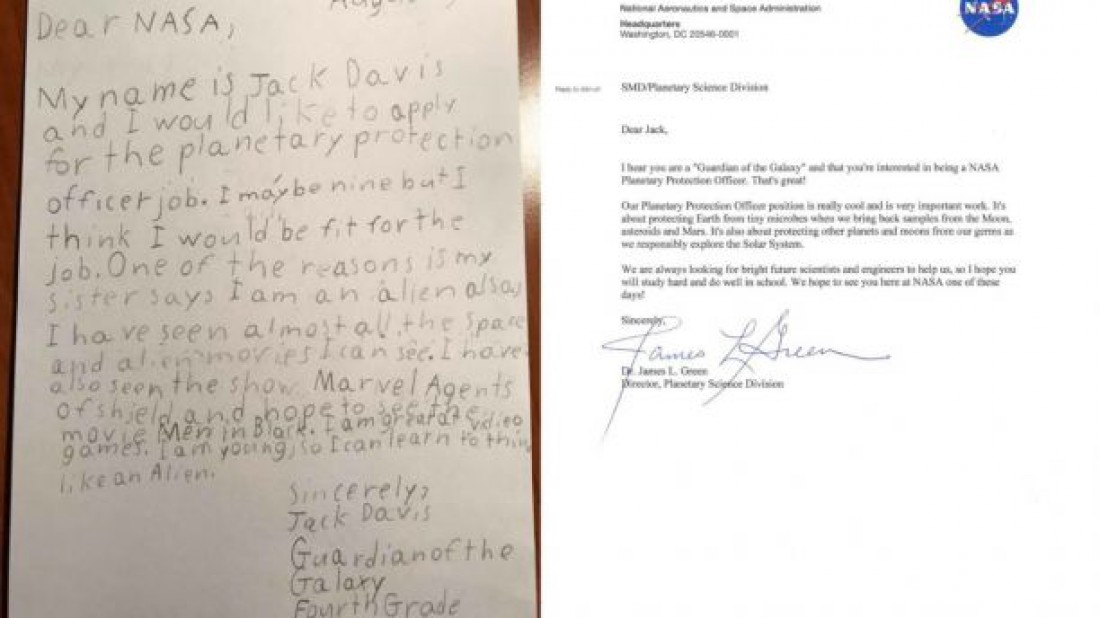 Dear NASA,
My name is Jack Davis
and I would like to apply
for the planetary protection
officer job. I may be nine but I
think I would be fit for the
job. One of the reasons is my
sister says I am an alien also,
I have seen almost all the space
and alien movies I can see. I have
also seen the show Marvel Agents
of shield and hope to see the
movie Men in Black. I am great at vdieo
games. I am young, so I can learn to thin
like an Alien.
Sincerely,
Jack Davis
Guardian of the
Galaxy
Fourth Grade
National Aeronautics and Space Administration
Headquarters
Washington, DC 20546-0001
NASA
SMD/Planetary Science Division
Dear Jack,
I hear you are a "Guardian of the Galaxy" and that you're interested in being a NASA
Planetary Protection Officer. That's great!
Our Planetary Protection Officer position is really cool and is very important work. It's
about protecting Earth from tiny microbes when we bring back samples from the Moon,
asteroids and Mars. It's also about protecting other planets and moons from our germs as
we responsibly explore the Solar System.
We are always looking for bright future scientists and engineers to help us, so I hope you
will study hard and do well in school. We hope to see you here at NASA one of these
days!
Sincerely,
James L Green
Dr. James L. Green
Director, Planetary Science Division